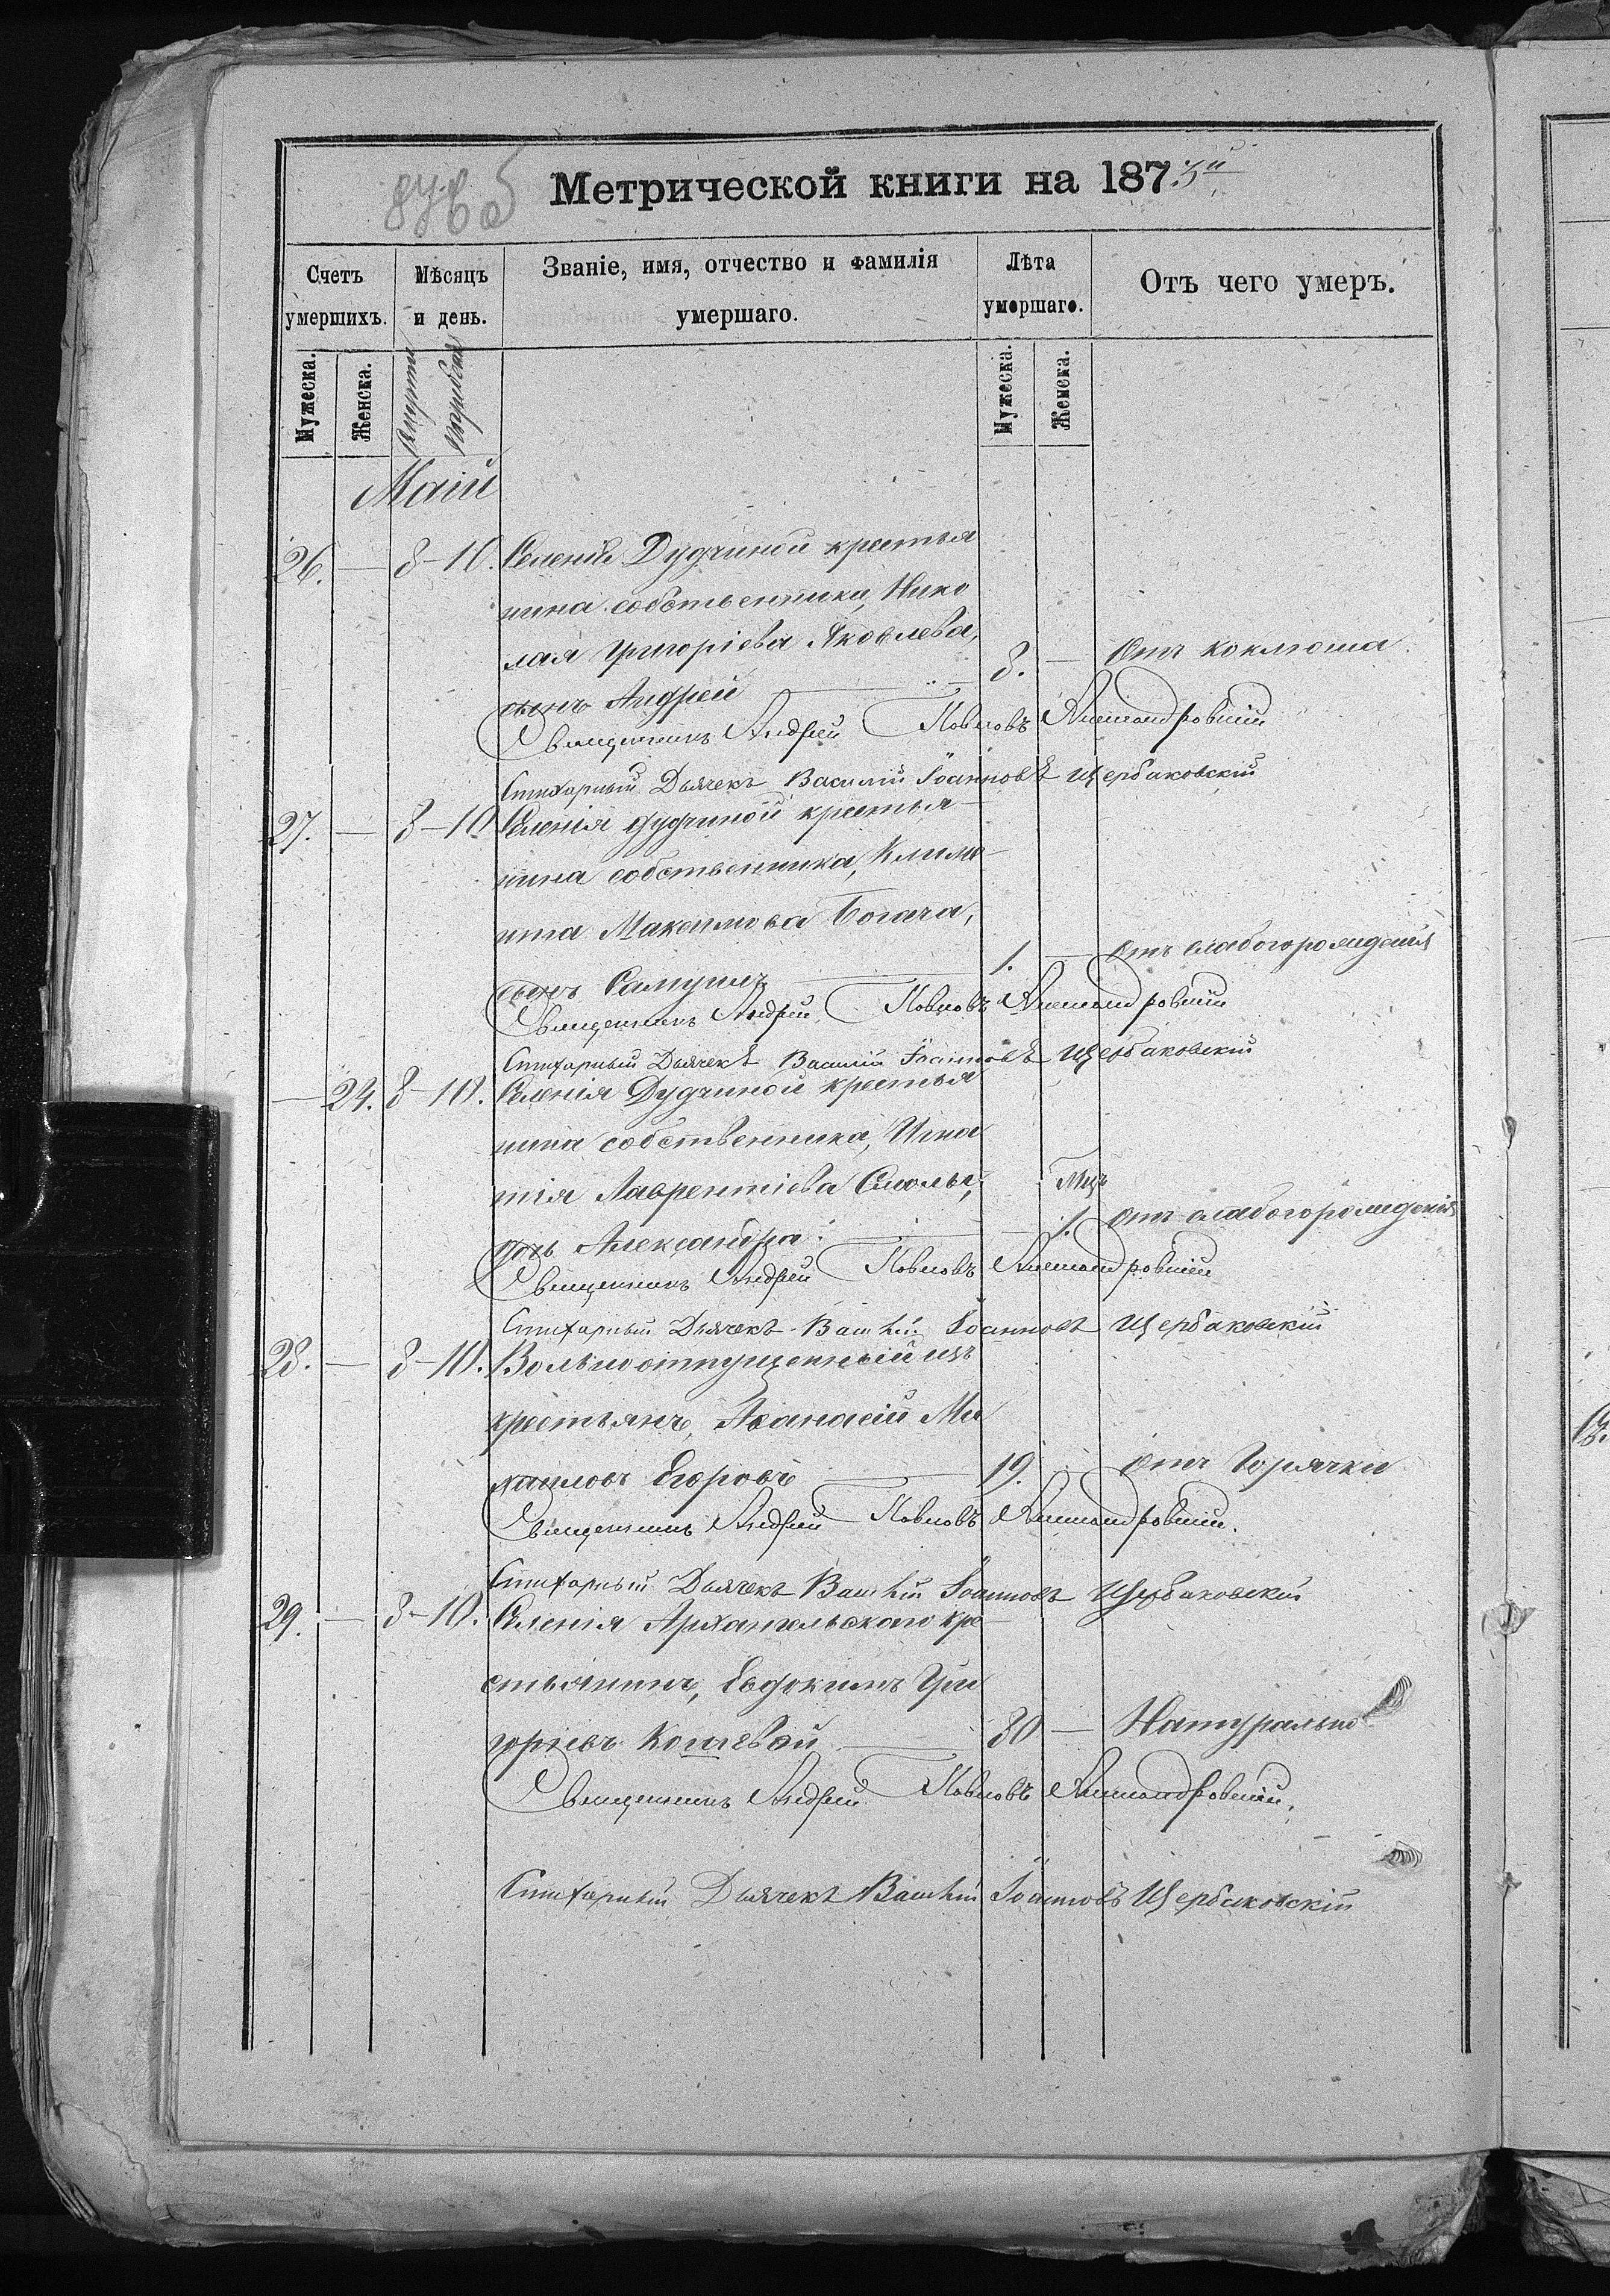 Метрической книги на 1873й
Счетъ умершихъ. Мѣсяцъ и день. Званіе, имя, отчество и фамилія умершаго. Лѣта умершаго. Отъ чего умеръ.
Мужеска. Женска. Смерти Погребенія Мужеска. Женска.
Маій
26. — 8–10. Селенія Дудчиной крестья
нина собственника, Нико
лая Григоріева Яковлева,
сынъ Андрей — 8. — Отъ коклюша.
Священникъ Андрей Павловъ
Стихарный Дьячекъ Василій Іоанновъ Щербаковскій
27. — 8–10 Селенія Дудчиной крестья–
нина собственника, Климе–
нта Максимова Богача,
сынъ Самуилъ — 1. — Отъ слаборожденія
Священникъ Андрей Павловъ
Стихарный Дьячекъ Василій Іоанновъ Щербаковскій
— 24. 8–10. Селенія Дудчиной крестья
нина собственника, Игна
тія Лаврентіева Смолы,
дочь Александра. — Мцъ 1. Отъ слаборожденія
Священникъ Андрей Павловъ
Стихарный Дьячекъ Василій Іоанновъ Щербаковскій
28. — 8–10. Вольноотпущенный изъ
крестьянъ, Аѳанасій Ми
хаиловъ Егоровъ — 19. Отъ Горячки
Священникъ Андрей Павловъ
Стихарный Дьячекъ Василій Іоанновъ Щербаковскій
29. — 8–10. Селенія Архангельскаго кре–
стьянинъ, Евдокимъ Гри
горіевъ Кошевой — 80 — Натурально
Священникъ Андрей Павловъ
Стихарный Дьячекъ Василій Іоанновъ Щербаковскій